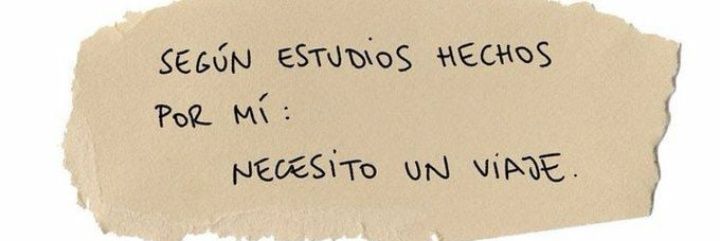 SEGÚN ESTUDIOS HECHOS
POR MÍ:
NECESITO UN VIAJE.